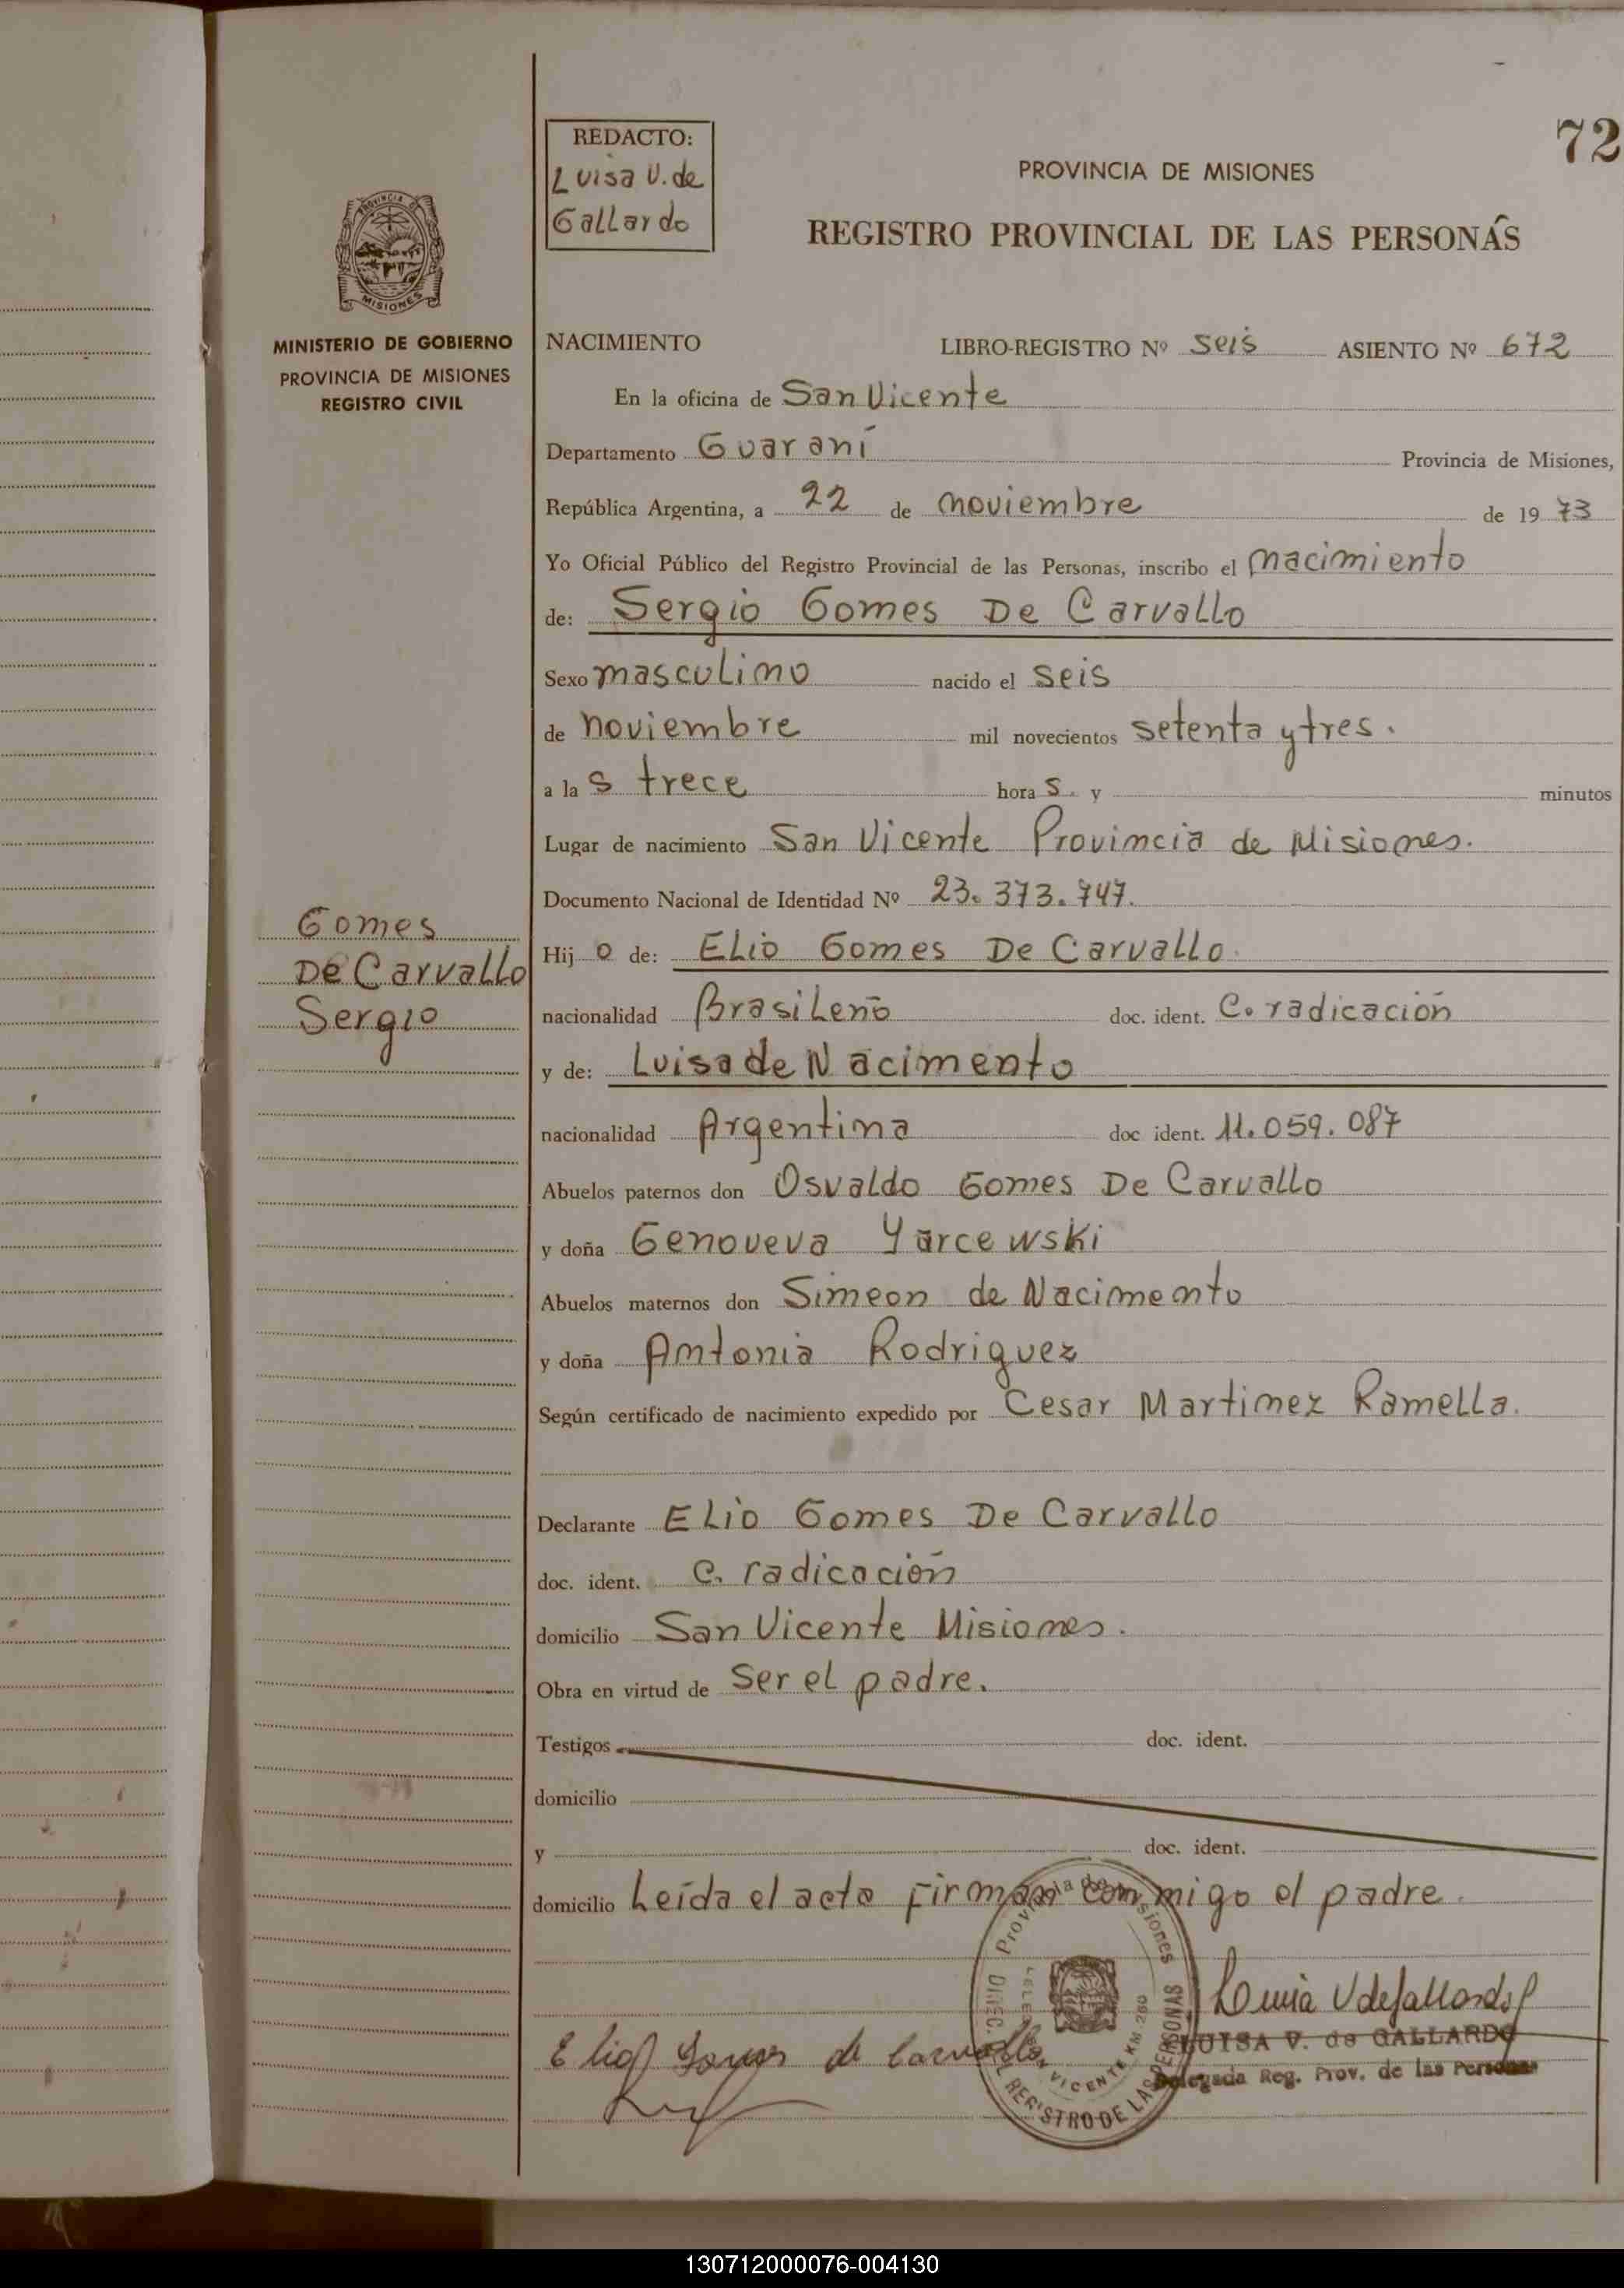 72
REDACTO:
Luisa V. de
Gallardo
PROVINCIA DE MISIONES
REGISTRO PROVINCIAL DE LAS PERSONAS
PROVINCIA DE
MISIONES
MINISTERIO DE GOBIERNO
PROVINCIA DE MISIONES
REGISTRO CIVIL
NACIMIENTO LIBRO-REGISTRO Nº seis ASIENTO Nº 672
En la oficina de San Vicente
Departamento Guaraní Provincia de Misiones,
República Argentina, a 22 de noviembre de 19 73
Yo Oficial Público del Registro Provincial de las Personas, inscribo el nacimiento
de: Sergio Gomes De Carvallo
Sexo masculino nacido el seis
de noviembre mil novecientos setenta y tres.
a la s trece hora s. y minutos
Lugar de nacimiento San Vicente Provincia de Misiones.
Documento Nacional de Identidad Nº 23.373.747.
Gomes
De Carvallo
Sergio
Hij o de: Elio Gomes De Carvallo.
nacionalidad Brasileño doc. ident. C. radicación
y de: Luisa de Nacimento
nacionalidad Argentina doc ident. 11.059.087
Abuelos paternos don Osvaldo Gomes De Carvallo
y doña Genoveva Yarcewski
Abuelos maternos don Simeon de Nacimento
y doña Antonia Rodriguez
Según certificado de nacimiento expedido por Cesar Martinez Ramella.
Declarante Elio Gomes De Carvallo
doc. ident. C. radicación
domicilio San Vicente Misiones.
Obra en virtud de ser el padre.
Testigos doc. ident.
domicilio
y doc. ident.
domicilio Leída el acta firman conmigo el padre.
Provincia de Misiones
DIREC. REGISTRO DE LAS PERSONAS
VICENTE KM. 260
Luisa V de Gallardo
Elio Gomes de Carvallo
LUISA V. de GALLARDO
Delegada Reg. Prov. de las Personas
130712000076-004130